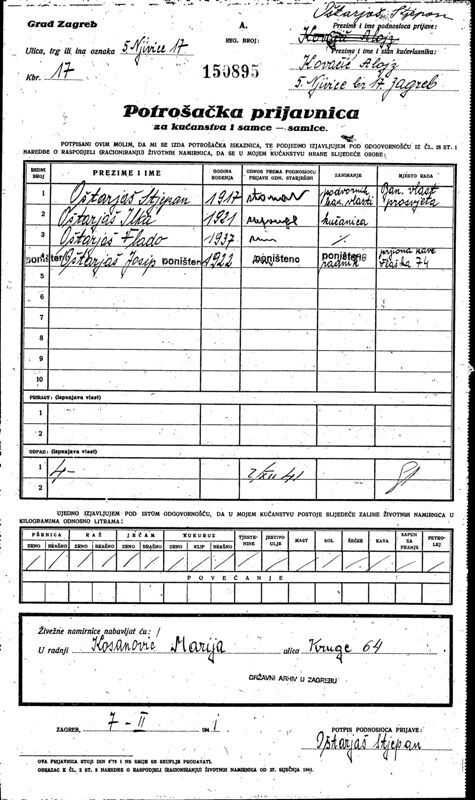 Grad Zagreb
A.
Oštarjaš Stjepan
Prezime i ime podnosioca prijave:
Ulica, trg ili ina oznaka 5 Njivice 17
REG. BROJ:
Kovačić Alojz
Prezime i ime i stan kućevlasnika:
Kbr. 17
150895
Kovačić Alojz
5. Njivice br 17. Zagreb
Potrošačka prijavnica
za kućanstva i samce — samice.
POTPISANI OVIM MOLIM, DA MI SE IZDA POTROŠAČKA ISKAZNICA, TE PODJEDNO IZJAVLJUJEM POD ODGOVORNOŠĆU IZ ČL. 18 ST. 1
NAREDBE O RASPODJELI (RACIONIRANJU) ŽIVOTNIH NAMIRNICA, DA SE U MOJEM KUĆANSTVU HRANE SLIJEDEĆE OSOBE:
REDNI BROJ PREZIME I IME GODINA ROĐENJA ODNOS PREMA PODNOSIOCU PRIJAVE ODN. STARJEŠINI ZANIMANJE MJESTO RADA
1 Oštarjaš Stjepan 1917 podvornik ban. vlasti Ban. vlast prosvjeta
2 Oštarjaš Ilka 1921 supruga kućanica
3 Oštarjaš Vlado 1937 sin /.
4 poništeno Oštarjaš Josip poništeno 1922 poništeno poništeno radnik Vlaška 74
5
6
7
8
9
10
PRIRAST: (ispunjava vlast)
1
2
OTPAD: (ispunjava vlast)
1 4- 2/XII 41
2
UJEDNO IZJAVLJUJEM POD ISTOM ODGOVORNOŠĆU, DA U MOJEM KUĆANSTVU POSTOJE SLIJEDEĆE ZALIHE ŽIVOTNIH NAMIRNICA U
KILOGRAMIMA ODNOSNO LITRAMA:
PŠENICA RAŽ JEČAM KUKURUZ TJESTENINE JESTIVO ULJE MAST SOL ŠEĆER KAVA SAPUN ZA PRANJE PETROLEJ
ZRNO BRAŠNO ZRNO BRAŠNO ZRNO BRAŠNO ZRNO KLIP BRAŠNO
/ / / / / / / / / / / / / / / / /
POVEĆANJE
Živežne namirnice nabavljat ću:
U radnji Kosanović Marija ulica Kruge 64
DRŽAVNI ARHIV U ZAGREBU
ZAGREB, 7 - II 1941
POTPIS PODNOSIOCA PRIJAVE:
Oštarjaš Stjepan
OVA PRIJAVNICA STOJI DIN 0·75 I NE SMIJE SE SKUPLJE PRODAVATI.
OBRAZAC K ČL. 2 ST. 3 NAREDBE O RASPODJELI (RACIONIRANJU) ŽIVOTNIH NAMIRNICA OD 27. SIJEČNJA 1941.